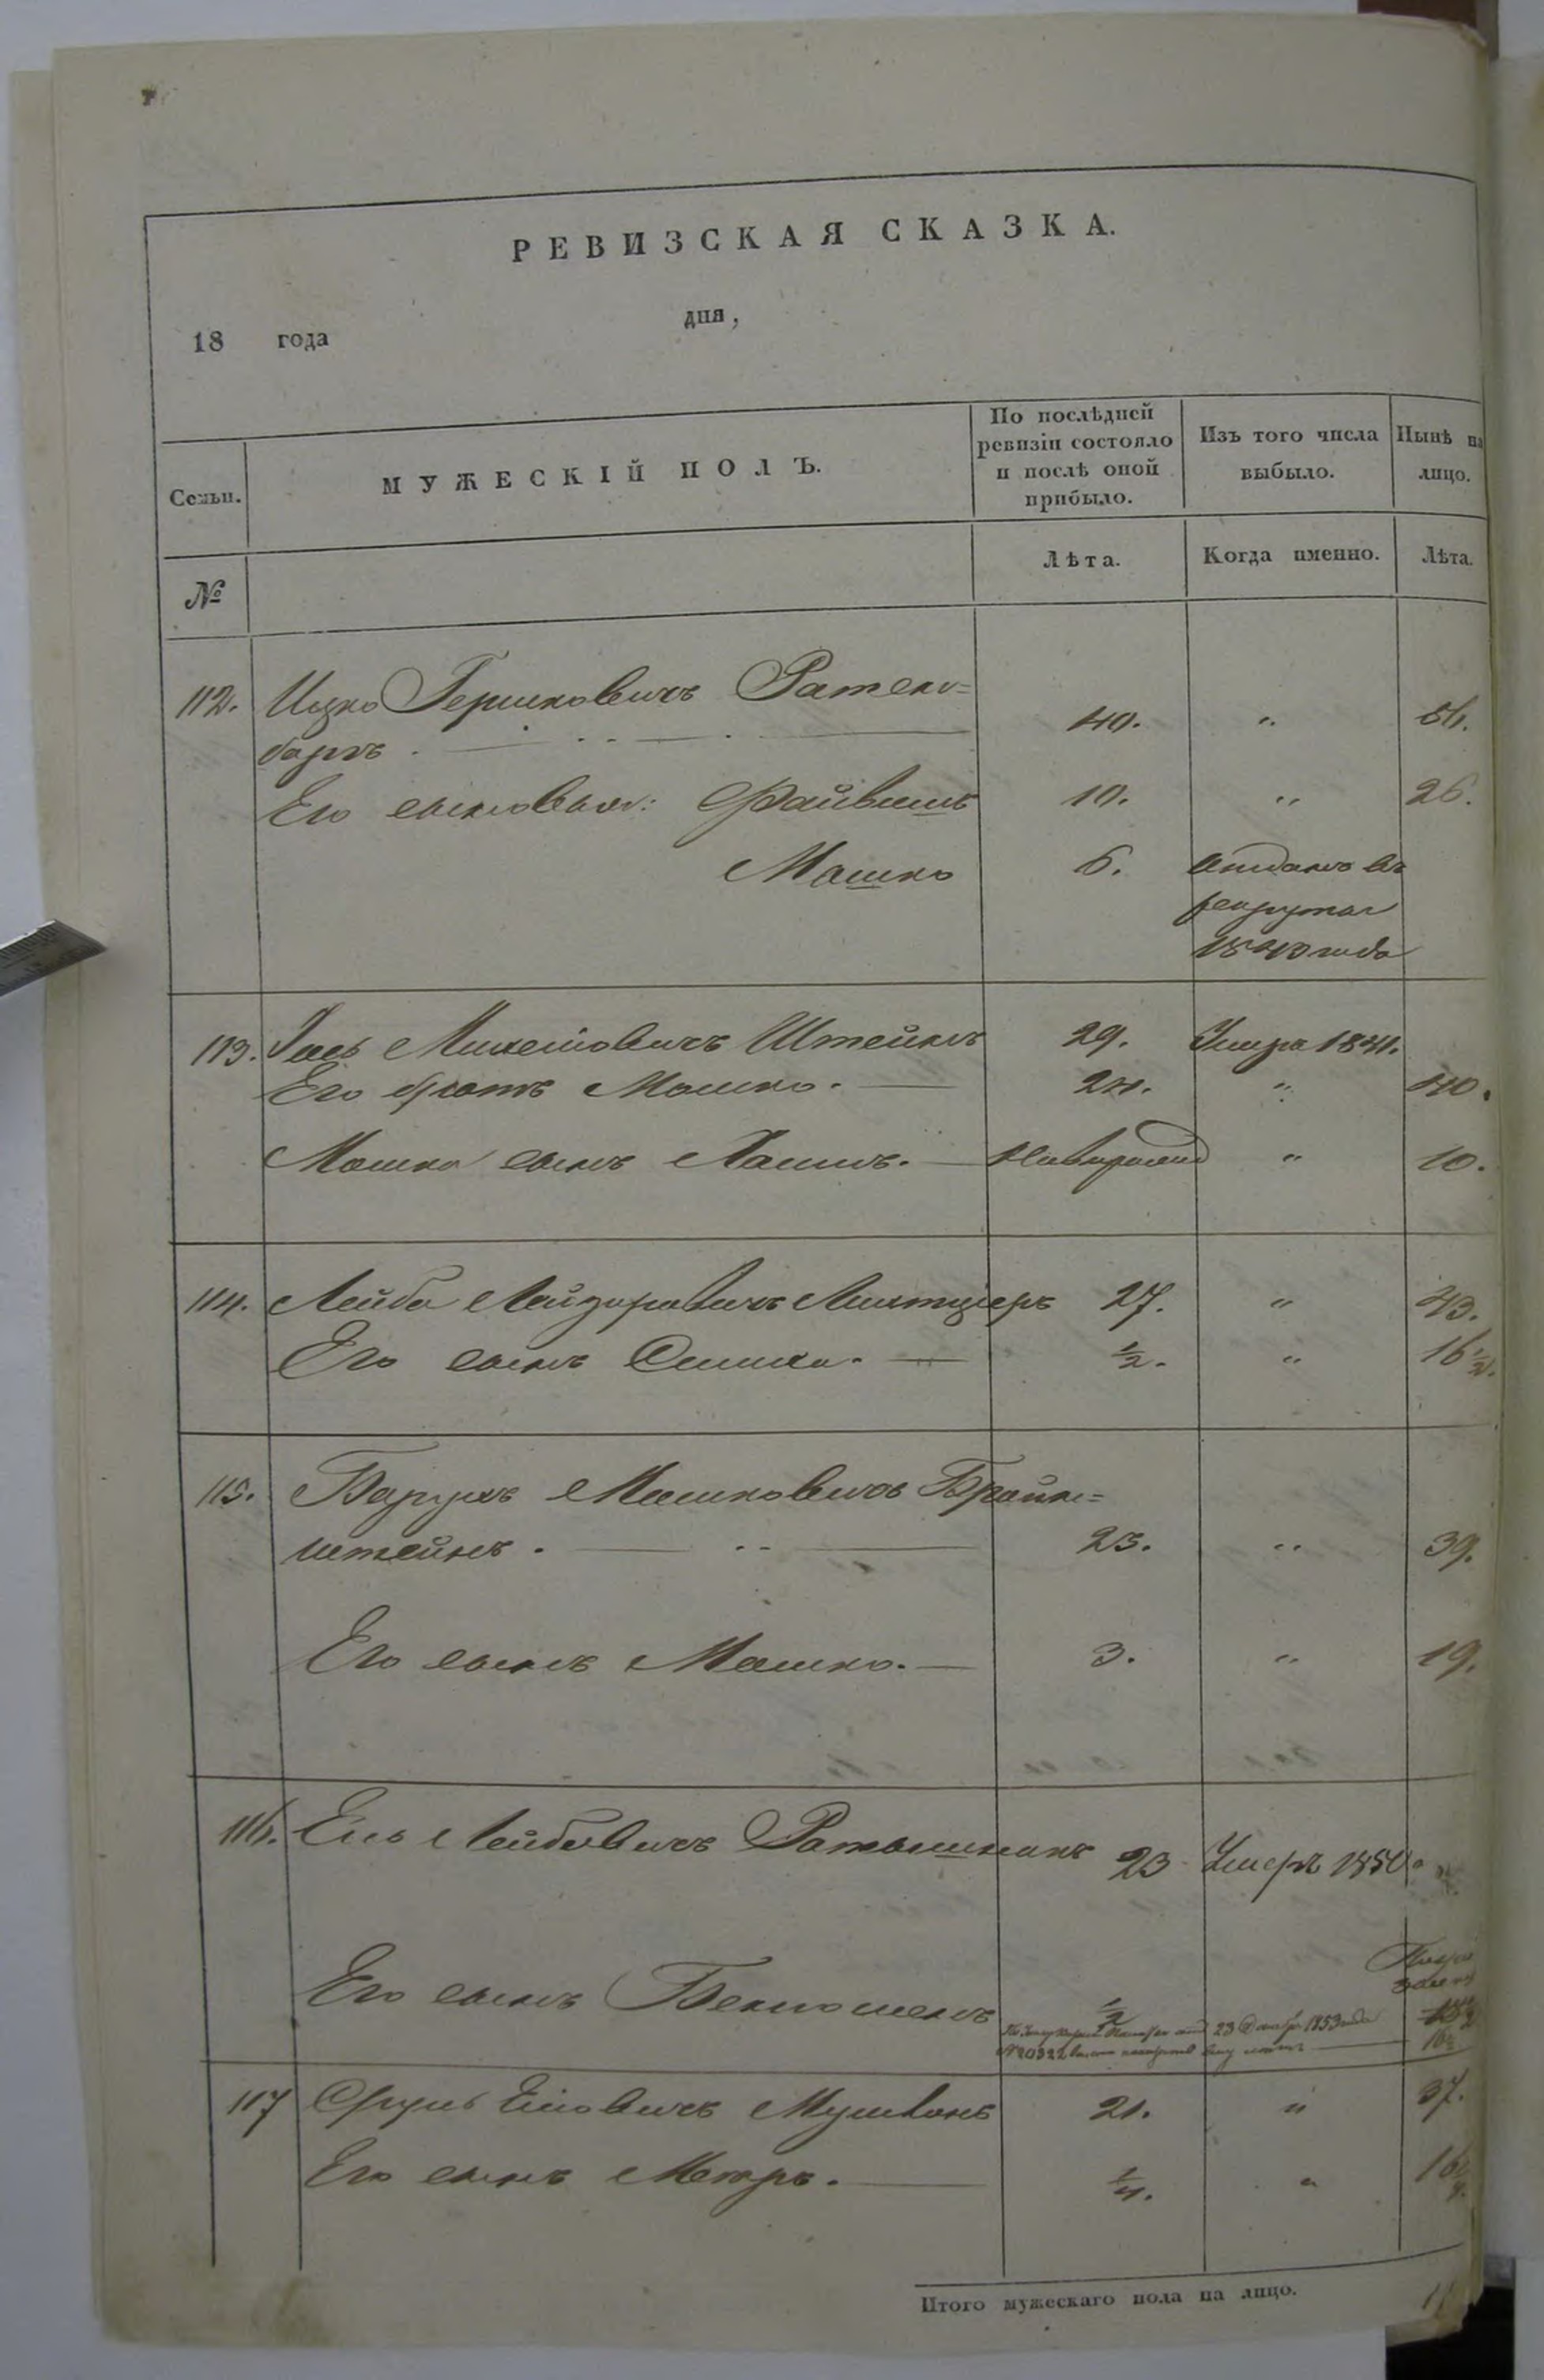 РЕВИЗСКАЯ СКАЗКА.
18 года дня,
Семьи. МУЖЕСКІЙ ПОЛЪ. По послѣдней ревизіи состояло и послѣ оной прибыло. Изъ того числа выбыло. Нынѣ на лицо.
№ Лѣта. Когда именно. Лѣта.
112. Ицко Гершковичъ Ратен=
баръ 40. " 56.
Его сыновья: Файвишъ 10. " 26.
Мошко 6. отданъ въ
рекруты
1840 года
113. Штейнъ 29. Умеръ 1841.
Его братъ Мошко. 24. " 40.
Мошка сынъ Хаимъ. Новорожд " 10.
114. Лейба Лейзоровичъ 27. " 43.
Его сынъ Симха. ½. " 16½.
115. Барухъ Мошковичъ Брайн=
штейнъ. 23. " 39.
Его сынъ Мошко. 3. " 19.
116. Ель Лейбовичъ 23 Умеръ 1850.
Его сынъ ½
23 1853 года
16½
117 Сруль 21. " 37.
Его сынъ ¼. " 16¼.
Итого мужескаго пола на лицо.